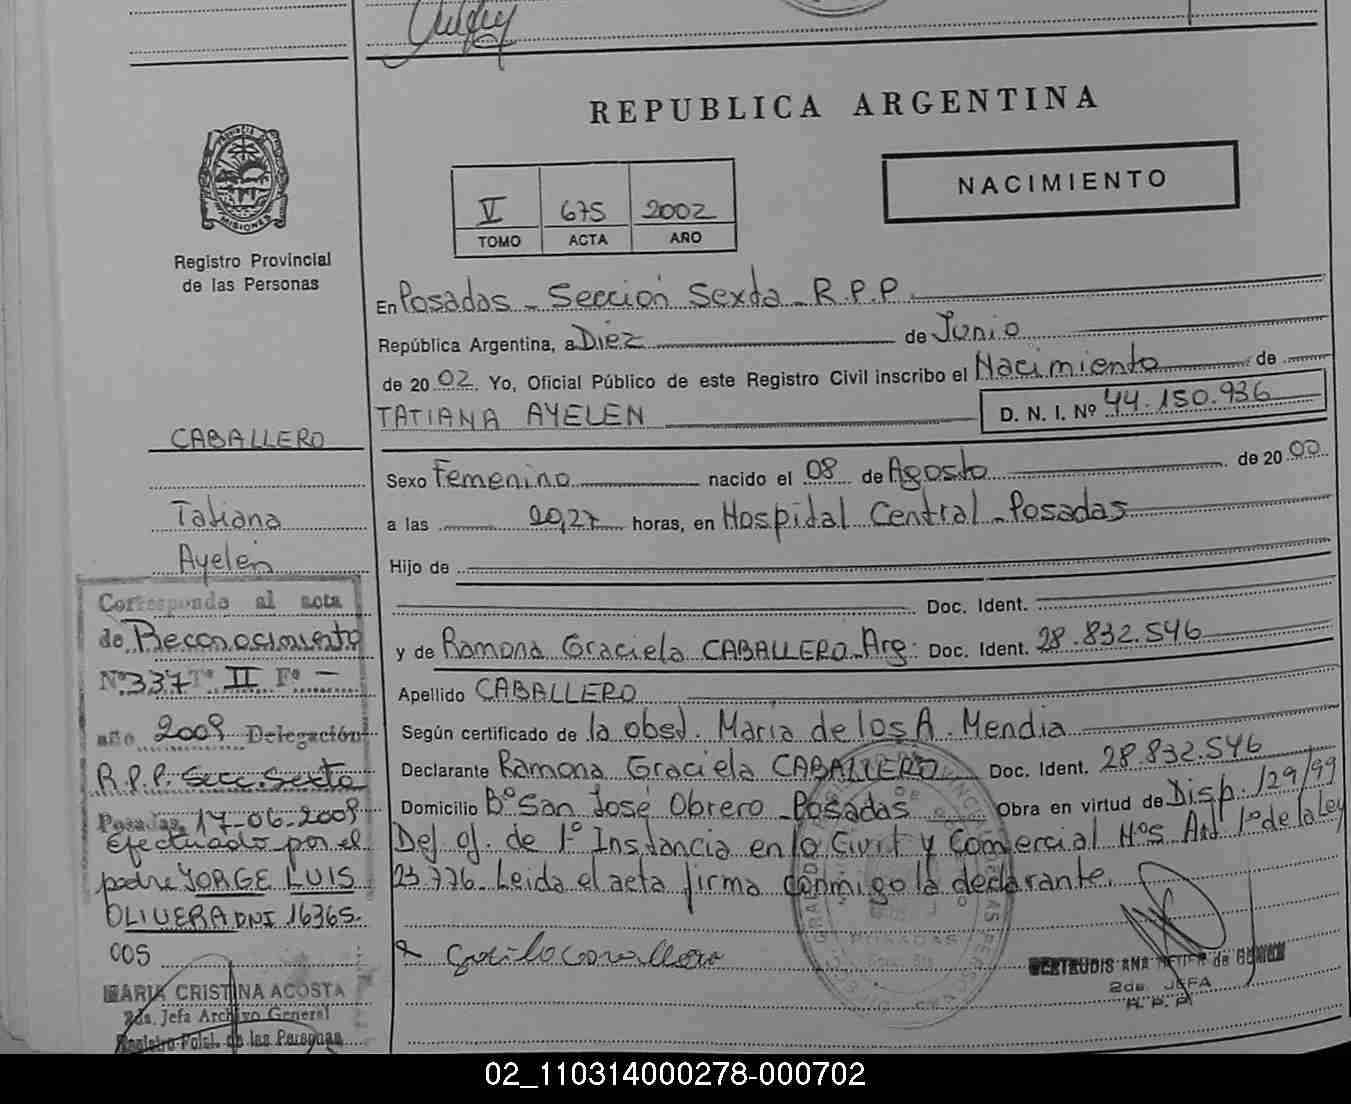 REPUBLICA ARGENTINA
NACIMIENTO
V 675 2002
TOMO ACTA AÑO
MISIONES
Registro Provincial
de las Personas
CABALLERO
Tatiana
Ayelen
En Posadas - Sección Sexta - R.P.P.
República Argentina, a Diez de Junio
de 2002. Yo, Oficial Público de este Registro Civil inscribo el Nacimiento de
TATIANA AYELEN D. N. I. Nº 44.150.936
Sexo Femenino nacido el 08 de Agosto de 2000
a las 20,27 horas, en Hospital Central - Posadas
Hijo de
Doc. Ident.
y de Ramona Graciela CABALLERO - Arg: Doc. Ident. 28.832.546
Apellido CABALLERO
Según certificado de la obst. Maria de los A. Mendia
Declarante Ramona Graciela CABALLERO Doc. Ident. 28.832.546
Domicilio Bº San José Obrero - Posadas Obra en virtud de Disp. 129/99
Del of. de 1º Instancia en lo Civil y Comercial Nºs Art 1º de la Ley
23.776 - Leida el acta firma conmigo la declarante.
POSADAS
GERTRUDIS ANA de
2da. JEFA
R. P. P.
Corresponde al acta
de Reconocimiento
Nº 337 Tº II Fº -
año 2009 Delegación
R.P.P. Secc. Sexta
Posadas, 17-06-2009
Efectuado por el
padre JORGE LUIS
OLIVERA DNI 16365.
005
MARIA CRISTINA ACOSTA
2da. Jefa Archivo General
Registro Pcial. de las Personas
02_110314000278-000702